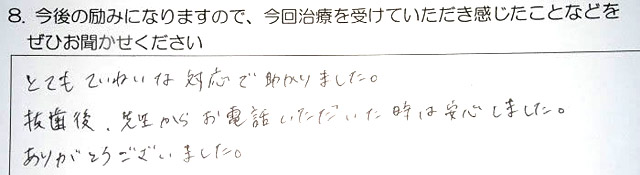 8. 今後の励みになりますので、今回治療を受けていただき感じたことなどを
ぜひお聞かせください
とてもていねいな対応で助かりました。
抜歯後、先生からお電話いただいた時は安心しました。
ありがとうございました。